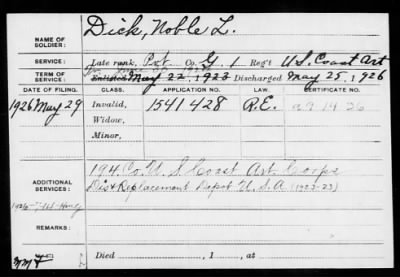 Dick, Noble L.
NAME OF
SOLDIER:
SERVICE: Late rank, Pvt Co. G. 1 Reg't U.S. Coast Art
TERM OF
SERVICE: Enlisted May 22, 1923 Discharged May 25, 1926
DATE OF FILING. CLASS. APPLICATION NO. LAW. CERTIFICATE NO.
1926 May 29 Invalid, 1541428 R.E. a9 14 26
Widow,
Minor,
ADDITIONAL
SERVICES:
194. Co. U. S. Coast Art Corps
Dis & Replacement Depot U.S.A (1922-23)
REMARKS:
Died , 1 , at